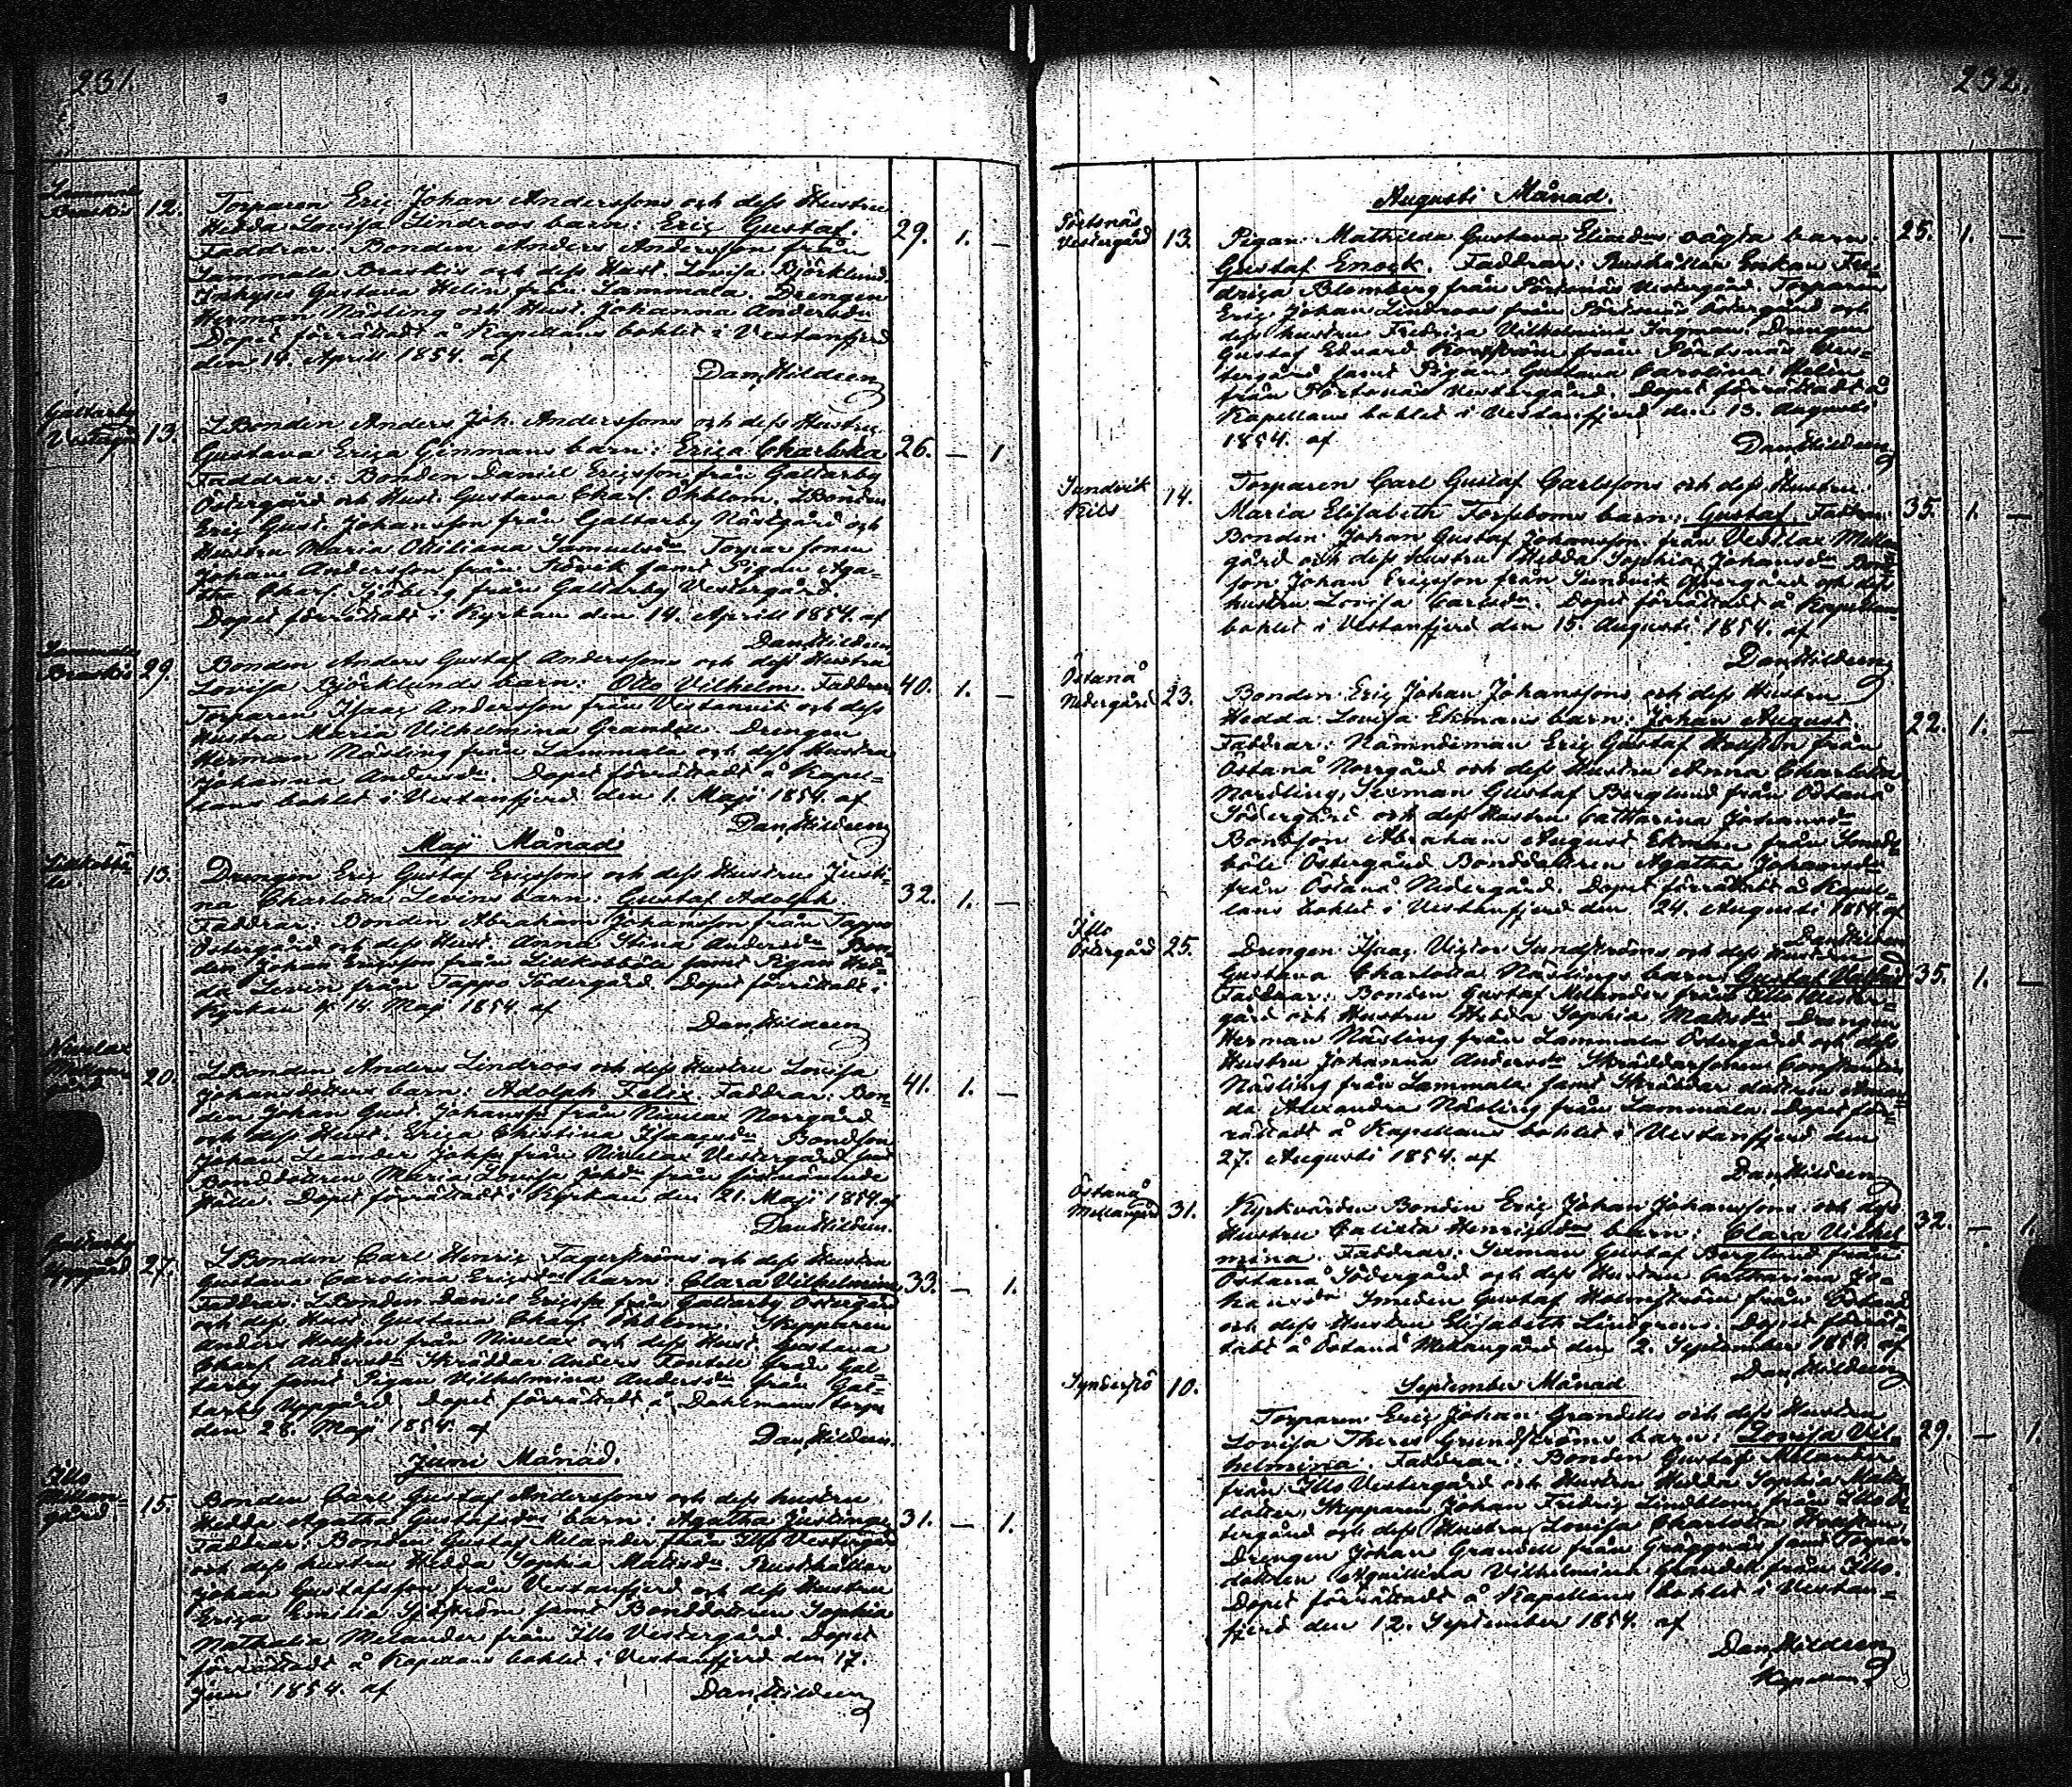 231.
Brastis 12.
Torparen Eric Johan Anderssons och dess Hustru
Hedda Lovisa Lindroos barn: Eric Gustaf. 29. 1. —
Faddrar: Bonden Anders Andersson från
Lammala Brastis och dess Hust. Lovisa Björklund.
Inhyses Gustava Helin från Lammala. Drengen
Herman Näsling och Hust. Johanna Andersdr
Dopet förrättadt å Kapellans bohlet i Vestanfjerd
den 14. Aprill 1854. af
Dan. Hildeen
Galtarby
13.
LBonden Anders Joh. Anderssons och dess Hustru
Gustava Erica Ginmans barn: Erica Charlotta 26. — 1
Faddrar: Bonden Daniel Ericsson från Galtarby
Östergård och Hust. Gustava Charl. Öhblom. LBonden
Eric Gust. Johansson från Galtarby Nästgård och
Hustru Maria Ottiliana Samuelsdr Torpar sonen
Johan Andersson från samt Pigan Aga-
tha Charl. Sjöberg från Galtarby Vestergård.
Dopet förrättadt i Kyrkan den 14. Aprill 1854. af
Dan Hildeen
Brastis 29.
Bonden Anders Gustaf Anderssons och dess Hustru
Lovisa Björklunds barn: Otto Vilhelm. Faddrar 40. 1. —
Torparen Isaac Andersson från Vestanvik och dess
Hustru Maria Vilhelmina Grandell. Drengen
Herman Näsling från Lammala och dess Hustru
Johanna Andersdr. Dopet förrättadt å Kapel-
lans bohlet i Vestanfjerd den 1. Maji 1854. af
Dan. Hildeen
Maji Månad
13.
Drengen Eric Gustaf Ericssons och dess Hustru Justi-
na Charlotta Levins barn: Gustaf Adolph. 32. 1. —
Faddrar: Bonden Abraham Johansson från Tappo
Östergård och dess Hust. Anna Stina Andersdr Bon-
den Johan Ericsson från samt Pigan Hed-
da Levin från Tappo Södergård Dopet förrättadt i
Kyrkan d. 14. Maji 1854. af
Dan. Hildeen
20.
LBonden Anders Lindroos och dess Hustru Lovisa
Johansdotters barn: Adolph Felix Faddrar: Bon- 41. 1. —
den Johan Gust. Johanss. från Nivelax Norrgård
och dess Hust. Erica Christina Isaacsdr Bondson
Johan Leander Johss. från Nivelax Vestergård samt
Bonddottren Maria Lovisa Johdr från sistnämnde
ställe. Dopet förrättadt i Kyrkan den 21. Maji 1854. af
Dan Hildeen.
Galtarby
Uppgård 27.
LBonden Carl Henric Fagerströms och dess Hustru
Gustava Carolina Ericsdrs barn: Clara Vilhelmina 33. — 1.
Faddrar: LBonden Daniel Ericss. från Galtarby Östergård
och dess Hust. Gustava Charl. Öhblom. Skepparen
Anders från Nivelax och dess Hust. Gustava
Charl. Andersdr Skräddar Anders Fontell från Gal-
tarby samt Pigan Vilhelmina Andersdr från Gal-
tarby Uppgård Dopet förrättadt å Dahlmans torp
den 28. Maji 1854. af
Dan. Hildeen.
Juni Månad.
Illo
Mellan-
gård. 15.
Bonden Carl Gustaf Anderssons och dess hustru
Hedda Agatha Gustafsdrs barn: Agatha Justina 31. — 1.
Faddrar: Bonden Gustaf Melander från Illo Vestergård
och dess hustru Hedda Sophia Matsdr. Rusthållar
Johan Gustafsson från Vestanfjerd och dess Hustru
Erica Emilia Sjöström samt Bonddottren Sophia
Nathalia Melander från Illo Vestergård. Dopet
förrättadt å Kapellans bohlet i Vestanfjerd den 17.
Juni 1854. af
Dan. Hildeen
232.
Augusti Månad.
Pörtsnäs
Vestergård 13.
Pigan Mathilda Gustava oägta barn: 25. 1. —
Gustaf Enock. Faddrar: Rusthållar Enkan Fre-
drica Blomberg från Pörtsnäs Vestergård. Torparen
Eric Johan Lindroos från Pörtsnäs Östergård och
dess hustru Fredrica Vilhelmina Ingman. Drengen
Gustaf Edvard från Pörtsnäs Ves-
tergård samt Pigan Gustava Carolina Helin
från Pörtsnäs Vestergård. Dopet förrättadt å
Kapellans bohlet i Vestanfjerd den 13. Augusti
1854. af
Dan Hildeen
Sundvik
14.
Torparen Carl Gustaf Carlssons och dess Hustru
Maria Elisabeth Torsboms barn: Gustaf. Faddrar: 35. 1. —
Bonden Johan Gustaf Johansson från Mellan-
gård och dess Hustru Hedda Sophia Johansdr Bond-
son Johan Ericsson från Sundvik Öfvergård och dess
hustru Lovisa Carlsdr. Dopet förrättadt å Kapellans
bohlet i Vestanfjerd den 15. Augusti 1854. af
Dan. Hildeen
Östanå
Nedergård 23.
Bonden Eric Johan Johanssons och dess Hustru
Hedda Lovisa Ekmans barn: Johan August. 22. 1. —
Faddrar: Nämndeman Eric Gustaf från
Östanå Norrgård och dess Hustru Anna Charlotta
Nordling, Sexman Gustaf Berglund från Östanå
Södergård och dess Hustru Catharina Johansdr
Bondson Abraham August Ekman från
böle Östergård Bonddottren Agatha Johansdr
från Östanå Nedergård. Dopet förrättadt å Kapel-
lans bohlet i Vestanfjerd den 24. Augusti 1854. af
Dan Hildeen
Illo
Östergård 25.
Drengen Isaac Victor Sundströms och dess Hustru
Gustava Charlotta Näslings barn: Gustaf 35. 1. —
Faddrar: Bonden Gustaf Melander från Illo Vester-
gård och Hustru Hedda Sophia Matsdr Drengen
Herman Näsling från Lammala Östergård och dess
Hustru Johanna Andersdr Skräddarsonen Constantin
Näsling från Lammala samt Skräddar dottren Aman-
da Alexandra Näsling från Lammala. Dopet för-
rättadt å Kapellans bohlet i Vestanfjerd den
27. Augusti 1854. af
Dan. Hildeen
Östanå
Mellangård 31.
Kyrkvärden Bonden Eric Johan Johanssons och dess
Hustru Calixta Henricsdrs barn: Clara Vilhel 32. — 1.
mina. Faddrar: Sexman Gustaf Berglund från
Östanå Södergård och dess Hustru Catharina Jo-
hansdr Smeden Gustaf Holmström från Östanå
och dess Hustru Elisabeth Lindgrens. Dopet förrät-
tadt å Östanå Mellangård den 2. September 1854. af
Dan. Hildeen
Synderstö 10.
September Månad
Torparen Eric Johan Grandells och dess Hustru
Lovisa Theres Grundströms barn: Lovisa Vil- 29. — 1.
helmina. Faddrar: Bonden Gustaf Melander
från Illo Vestergård och Hustru Hedda Sophia Mats-
dotter, Skepparen Johan Fredric Lindblom från Illo Ve-
stergård och dess Hustru Lovisa Charlotta
Drengen Johan Grandell från Gräggnäs samt Torpar
dottren Vilhelmina Grandell från Illo.
Dopet förrättadt å Kapellans bohlet i Vestan-
fjerd den 12. September 1854. af
Dan. Hildeen
Kapellan.